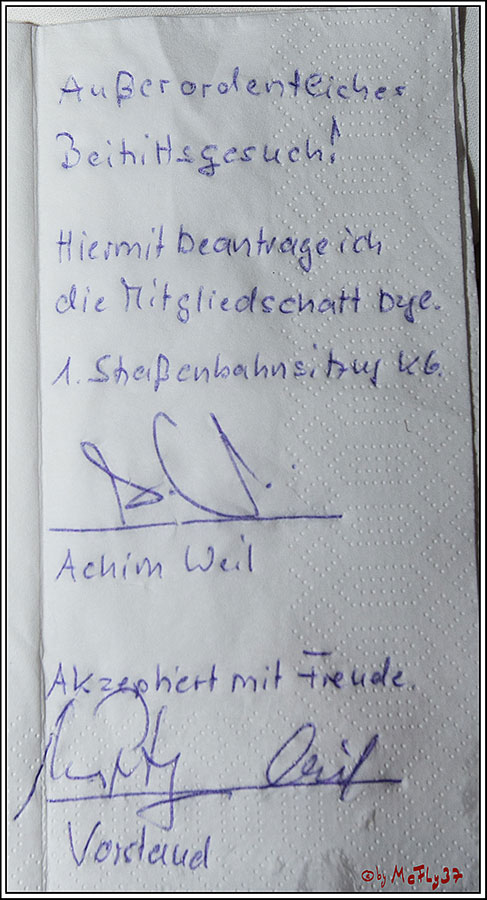 Außerordentliches
Beitrittsgesuch!
Hiermit beantrage ich
die Mitgliedschaft bye.
1. Straßenbahnsitzung KG.
Achim Weil
Akzeptiert mit Freude.
Vorstand
©by McFly37